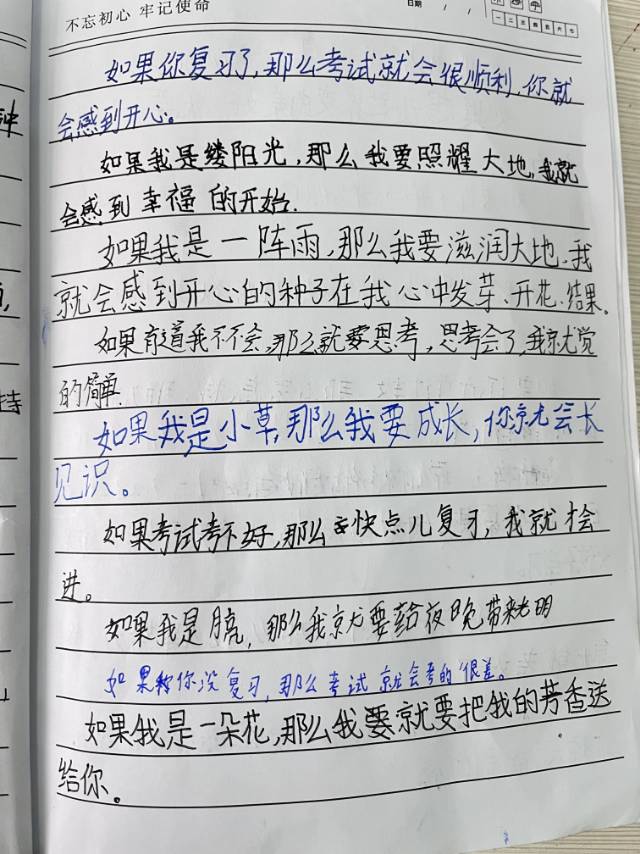 不忘初心 牢记使命
日期 / /
一 二 三 四 五 六 七
如果你复习了,那么考试就会很顺利,你就
会感到开心。
如果我是缕阳光,那么我要照耀大地,我就
会感到幸福的开始.
如果我是一阵雨,那么我要滋润大地,我
就会感到开心的种子在我心中发芽、开花、结果。
如果有道我不会,那么就要思考,思考会了,我就觉
的简单.
如果我是小草,那么我要成长,你就会长
见识。
如果考试考不好,那么快点儿复习,我就会
进。
如果我是月亮,那么我就要给夜晚带来光明
如果你没复习,那么考试就会考的很差。
如果我是一朵花,那么我要就要把我的芳香送
给你。
钟
持